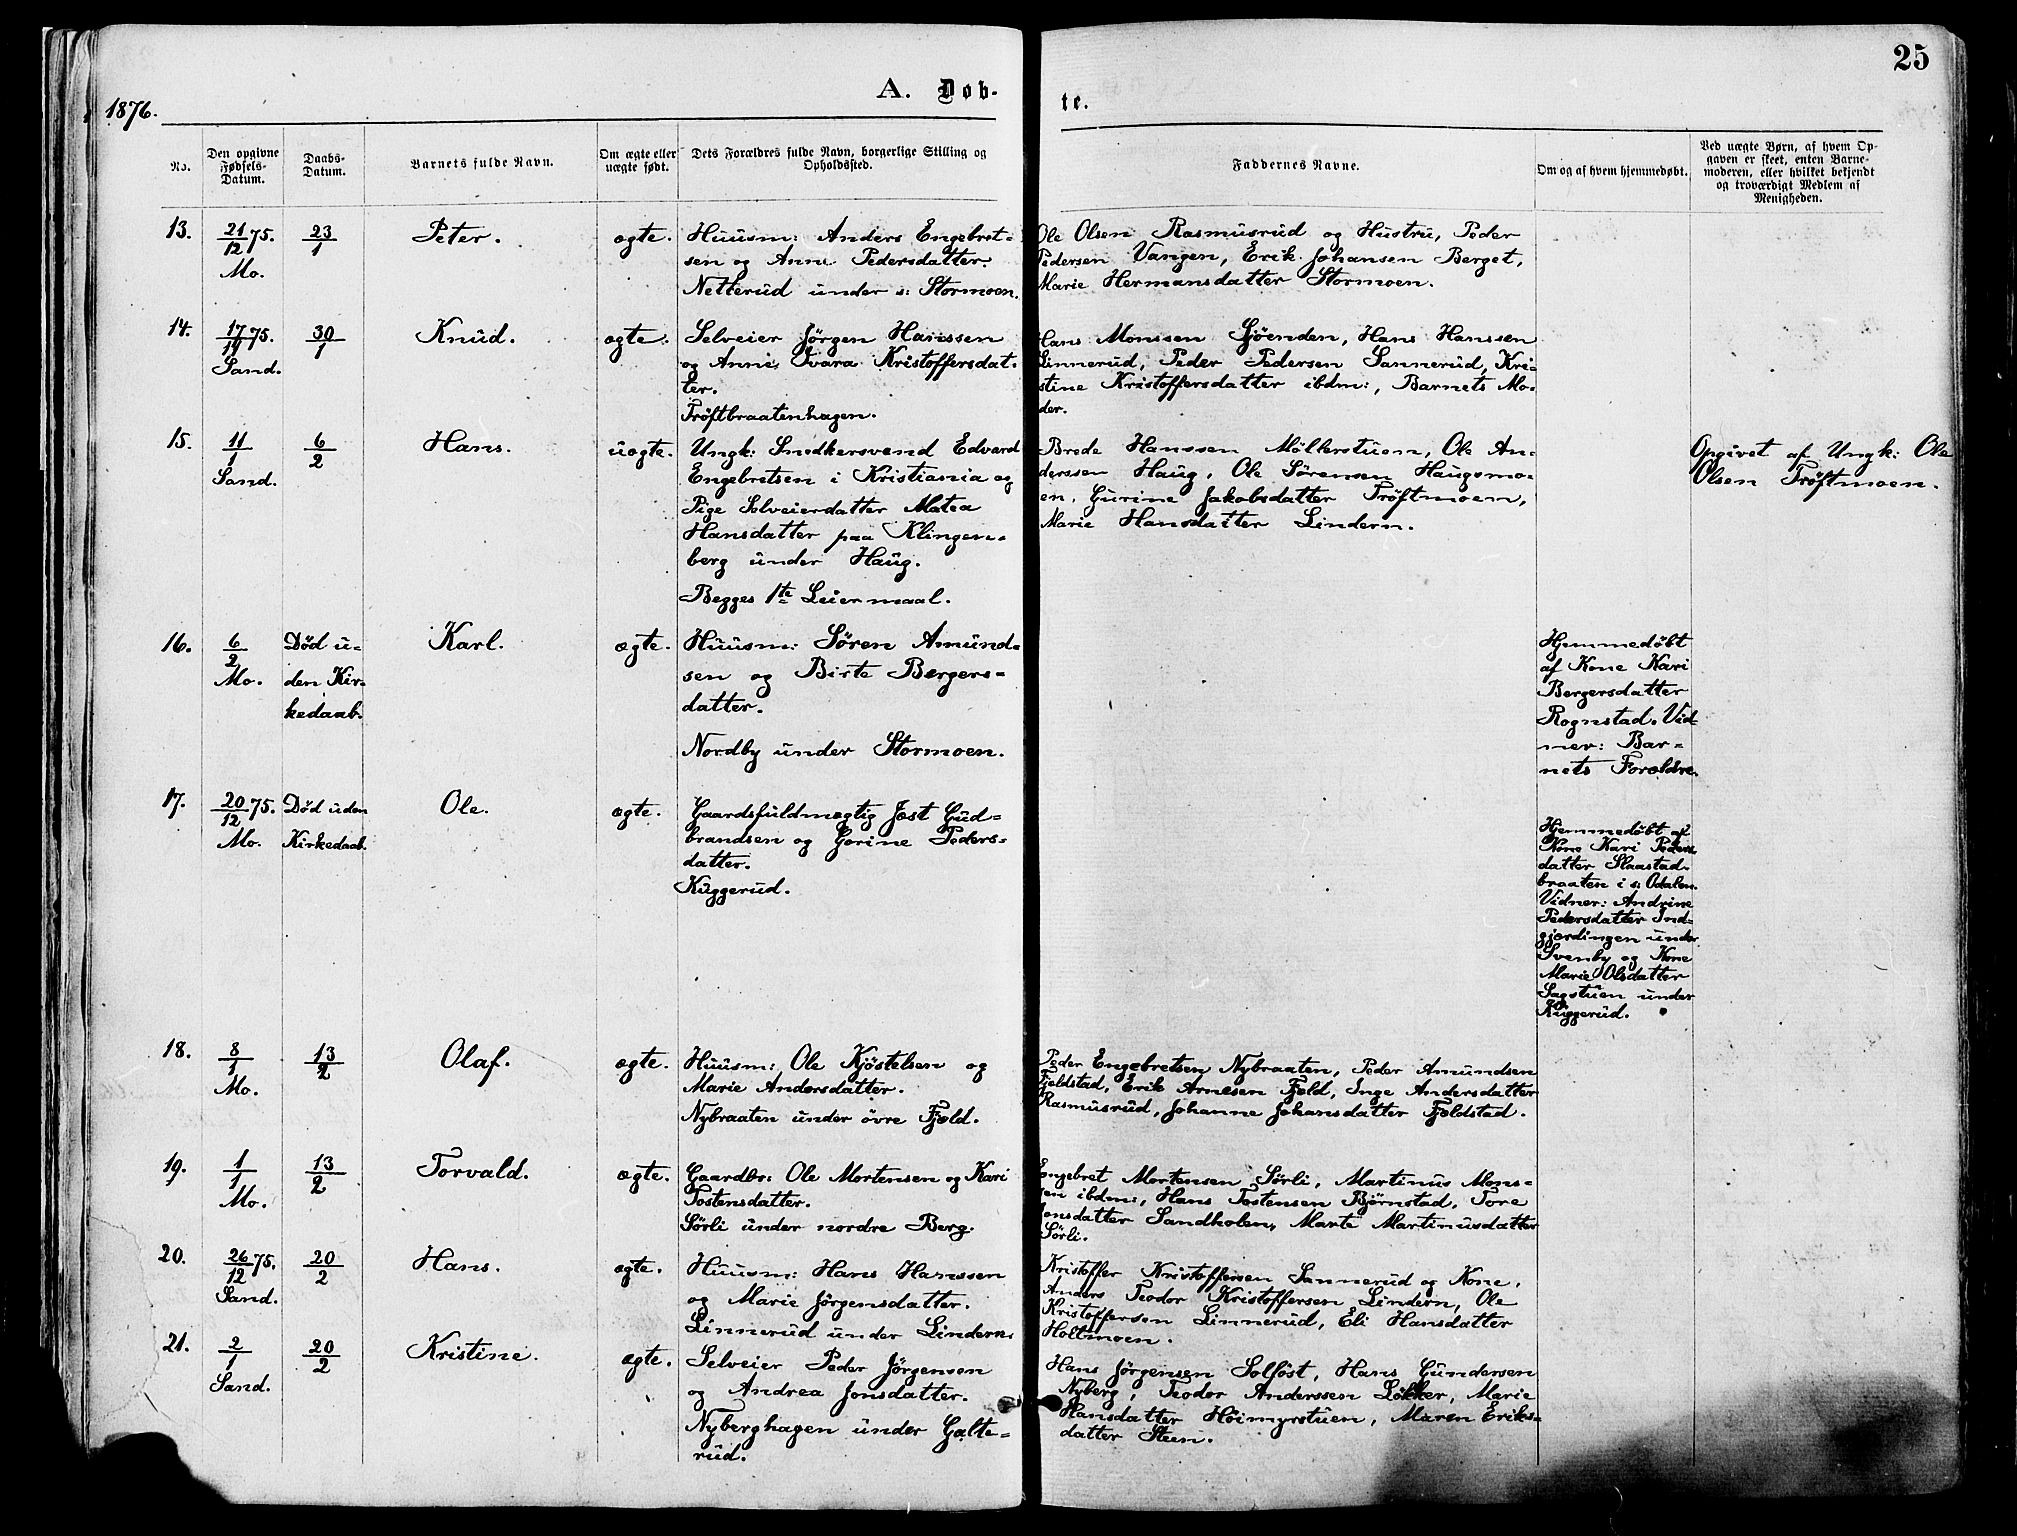 25
A. Døb-
te.
1876.
No.
Den opgivne Fødsels-Datum.
Daabs-Datum.
Barnets fulde Navn.
Om ægte eller uægte født.
Dets Forældres fulde Navn, borgerlige Stilling og Opholdssted.
Faddernes Navne.
Om og af hvem hjemmedøbt.
Ved uægte Børn, af hvem Op-
gaven er skeet, enten Barne-
moderen, eller hvilket bekjendt
og troværdigt Medlem af
Menigheden.
13.
21/12 75.
Mo.
23/1
Peter.
ægte.
Huusm: Anders Engebret-
sen og Anne Pedersdatter.
Netterud under s: Stormoen.
Ole Olsen Rasmusrud og Hustru, Peder
Pedersen Vangen, Erik Johansen Berget,
Marie Hermansdatter Stormoen.
14.
17/ 75.
Sand.
30/1
Knud.
ægte.
Selveier Jørgen Hanssen
og Anne Svara Kristoffersdat-
ter.
Trøftbraatenhagen.
Hans Monssen Sjøenden, Hans Hanssen
Linnerud, Peder Pedersen Sannerud, Kri-
stine Kristoffersdatter ibdm:, Barnets Mo-
der.
15.
11/1
Sand.
6/2
Hans.
uægte.
Ungk: Snedkersvend Edvard
Engebretsen i Kristiania og
Pige Selveierdatter Matea
Hansdatter paa Klingen-
berg under Haug.
Begges 1te Leiermaal.
Brede Hanssen Møllerstuen, Ole An-
derssen Haug, Ole Sørensen Haugsmo-
en, Gurine Jakobsdatter Trøftmoen,
Marie Hansdatter Lindern.
Opgivet af Ungk: Ole
Olsen Trøftmoen.
16.
6/2
Mo.
Død u-
den Kir-
kedaab.
Karl.
ægte.
Huusm: Søren Amund-
sen og Birte Bergers-
datter.
Nordby under Stormoen.
Hjemmedøbt
af Kone Kari
Bergersdatter
Rognstad. Vid-
ner: Bar-
nets Forældre.
17.
20/12 75.
Mo.
Død uden
Kirkedaab.
Ole.
ægte.
Gaardsfuldmægtig Jost Gud-
brandsen og Gorine Peders-
datter.
Kuggerud.
Hjemmedøbt af
Kone Kari Peders
datter Slaastad-
braaten i s: Odalen.
Vidner: Andrine
Pedersdatter Ind-
gjærdingen under
Svenby og Kone
Marie Olsdatter
Sagstuen under
Kuggerud.
18.
8/1
Mo.
13/2
Olaf.
ægte.
Huusm: Ole Kjøstelsen og
Marie Andersdatter.
Nybraaten under øvre Fjeld.
Peder Engebretsen Nybraaten, Peder Amundsen
Fjeldstad, Erik Arnesen Fjeld, Inge Andersdatter
Rasmusrud, Johanne Johansdatter Fjeldstad.
19.
1/1
Mo.
13/2
Torvald.
ægte.
Gaardbr: Ole Mortensen og Kari
Tostensdatter.
Sørli under nordre Berg.
Engebret Mortensen Sørli, Martinus Mons-
sen ibdm:, Hans Tostensen Bjørnstad, Tore
Jonsdatter Sandholen, Marte Martinusdatter
Sørli.
20.
26/12 75.
Sand.
20/2
Hans.
ægte.
Huusm: Hans Hanssen
og Marie Jørgensdatter.
Linnerud under Lindern.
Kristoffer Kristoffersen Sannerud og Kone,
Anders Teodor Kristoffersen Lindern, Ole
Kristoffersen Linnerud, Eli Hansdatter
Holtmoen.
21.
2/1
Sand.
20/2
Kristine.
ægte.
Selveier Peder Jørgensen
og Andrea Jonsdatter.
Nyberghagen under Galte-
rud.
Hans Jørgensen Solføst, Hans Gundersen
Nyberg, Teodor Anderssen Løkker, Marie
Hansdatter Høimyrstuen, Maren Eriks-
datter Steen.